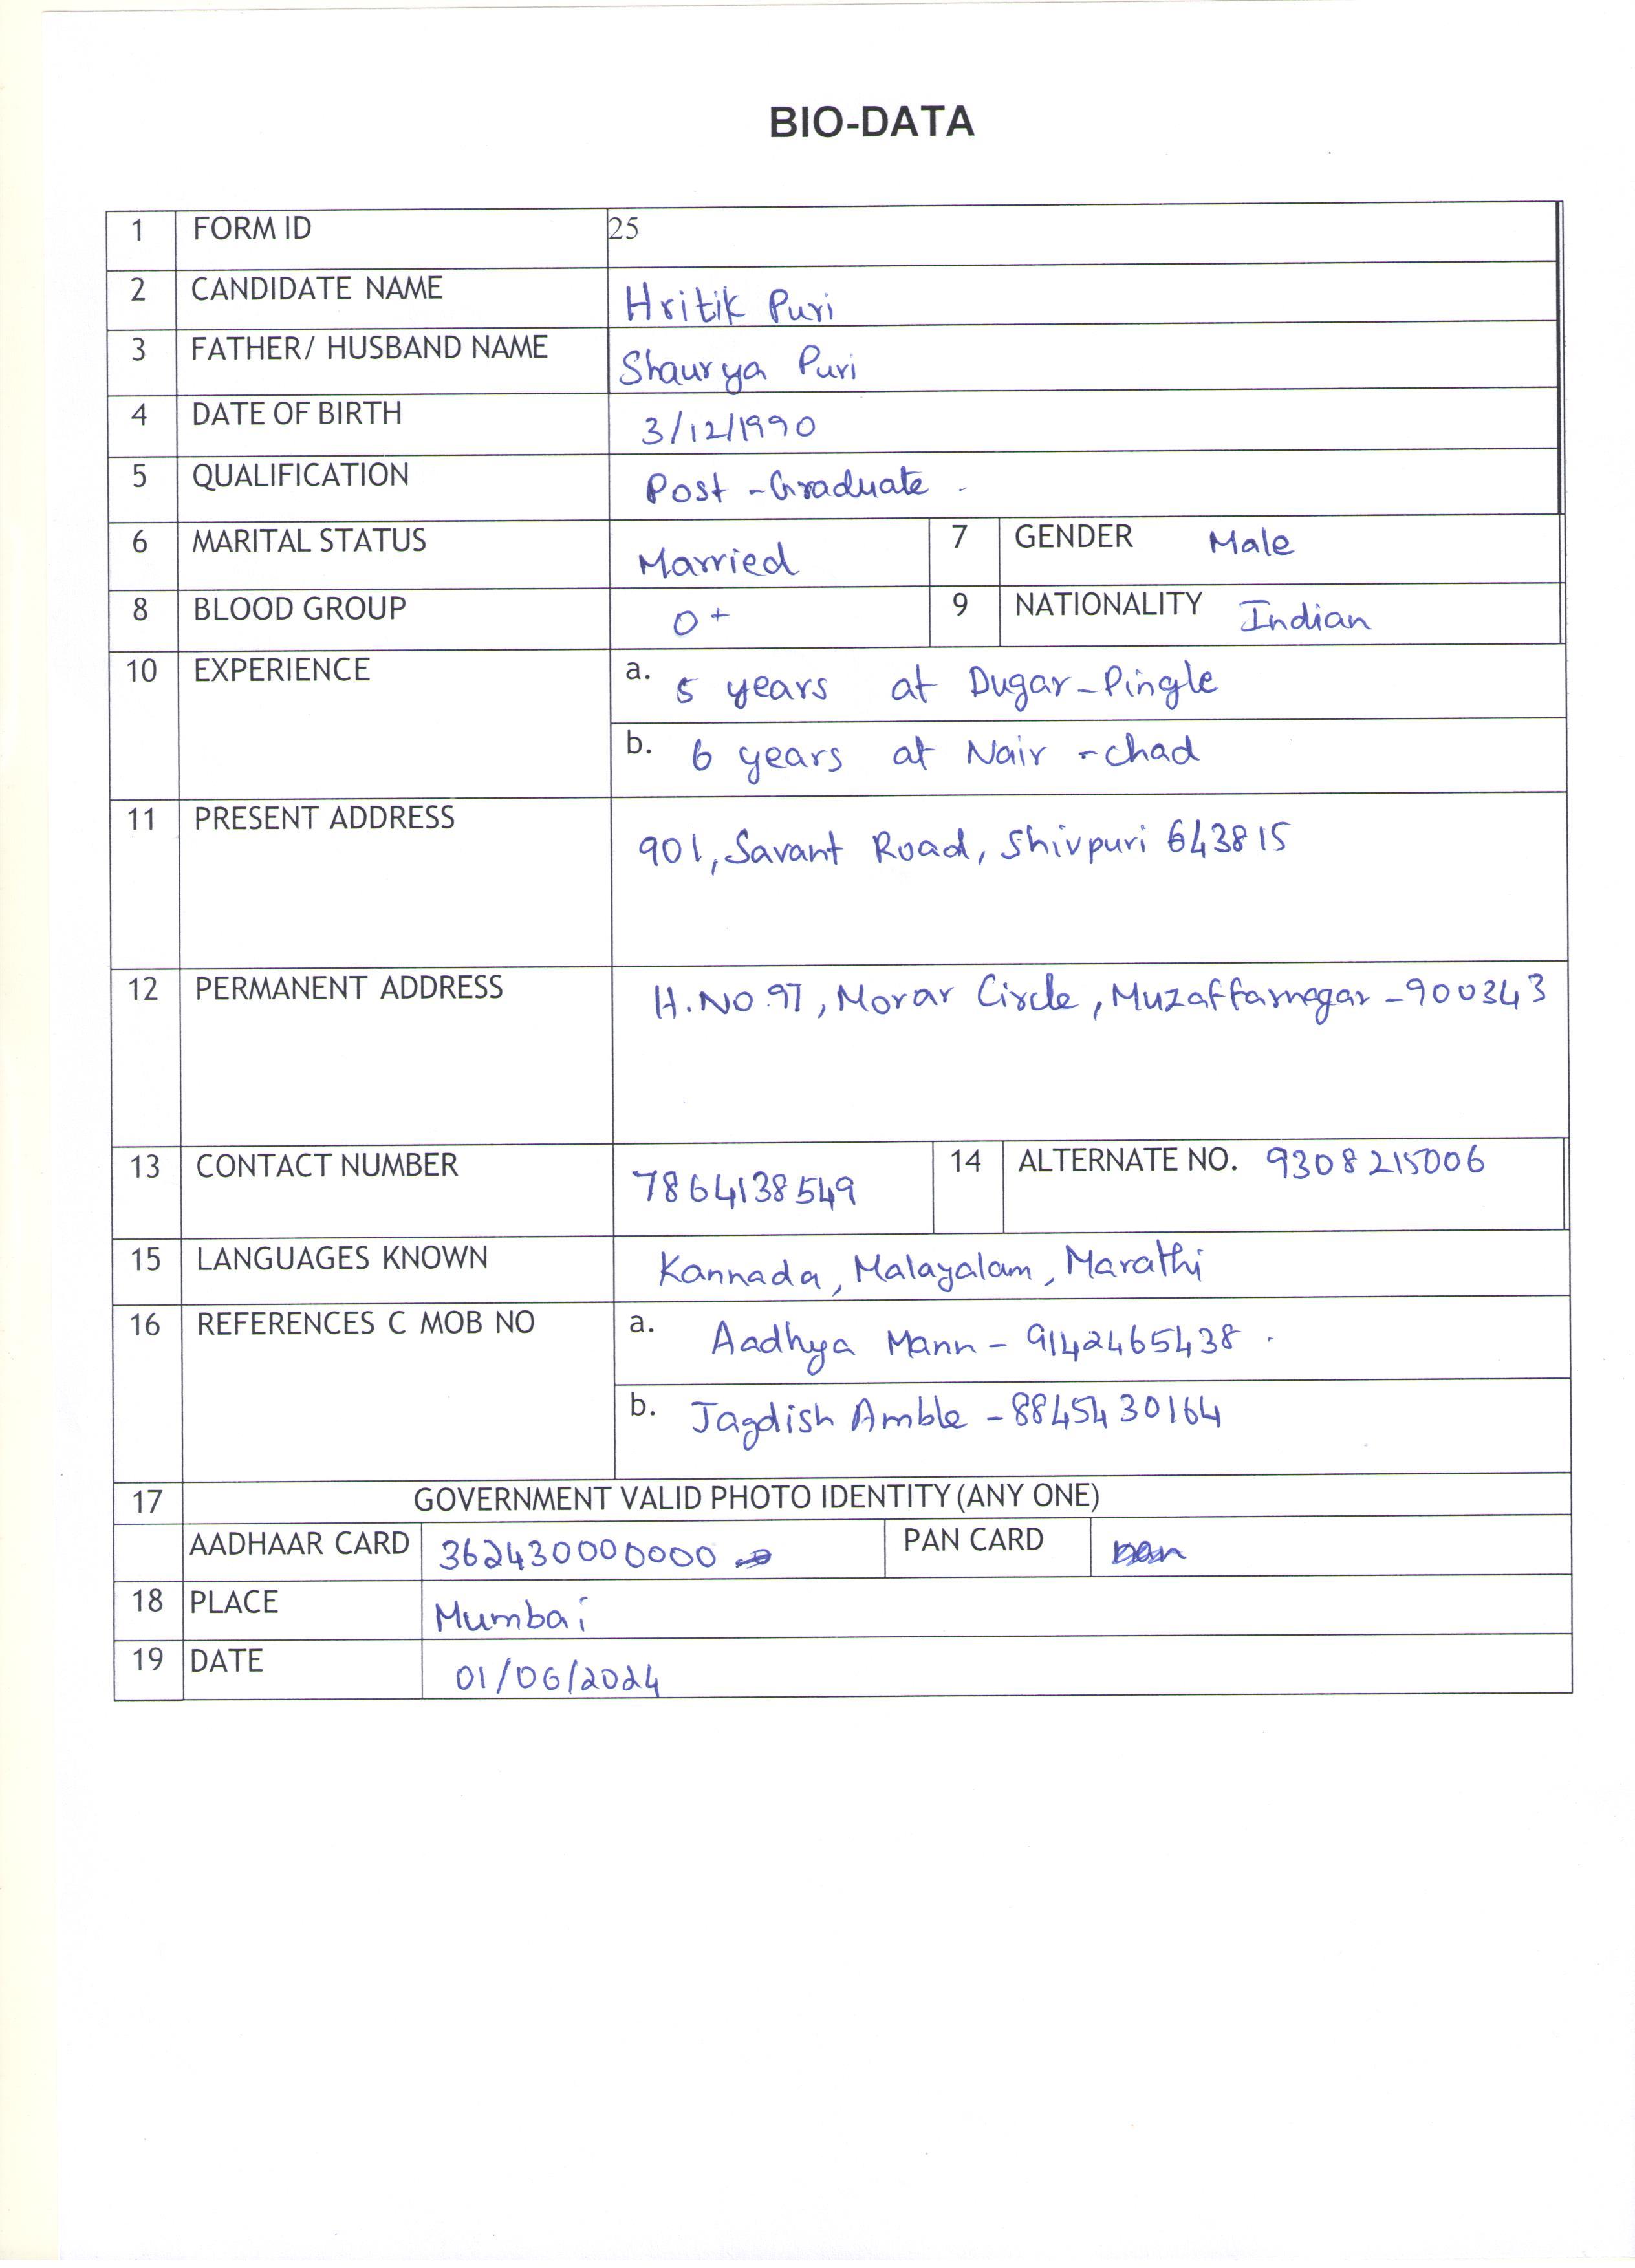 BIO-DATA
1 FORM ID 25
2 CANDIDATE NAME Hritik Puri
3 FATHER/ HUSBAND NAME Shaurya Puri
4 DATE OF BIRTH 3/12/1990
5 QUALIFICATION Post-Graduate
6 MARITAL STATUS Married 7 GENDER Male
8 BLOOD GROUP O+ 9 NATIONALITY Indian
10 EXPERIENCE a. 5 years at Dugar-Pingle
b. 6 years at Nair-chad
11 PRESENT ADDRESS 901, Savant Road, Shivpuri 643815
12 PERMANENT ADDRESS H.NO.97, Morar Circle, Muzaffarnagar-900343
13 CONTACT NUMBER 7864138549 14 ALTERNATE NO. 9308215006
15 LANGUAGES KNOWN Kannada, Malayalam, Marathi
16 REFERENCES C MOB NO a. Aadhya Mann-9142465438
b. Jagdish Amble-8845430164
17 GOVERNMENT VALID PHOTO IDENTITY(ANY ONE)
AADHAAR CARD 362430000000 PAN CARD
18 PLACE Mumbai
19 DATE 01/06/2024